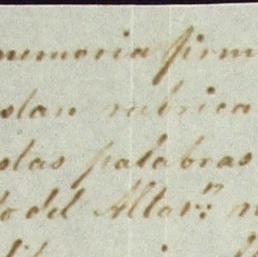 memoria firm
stan rubrica
stas palabras
to del Altar.n